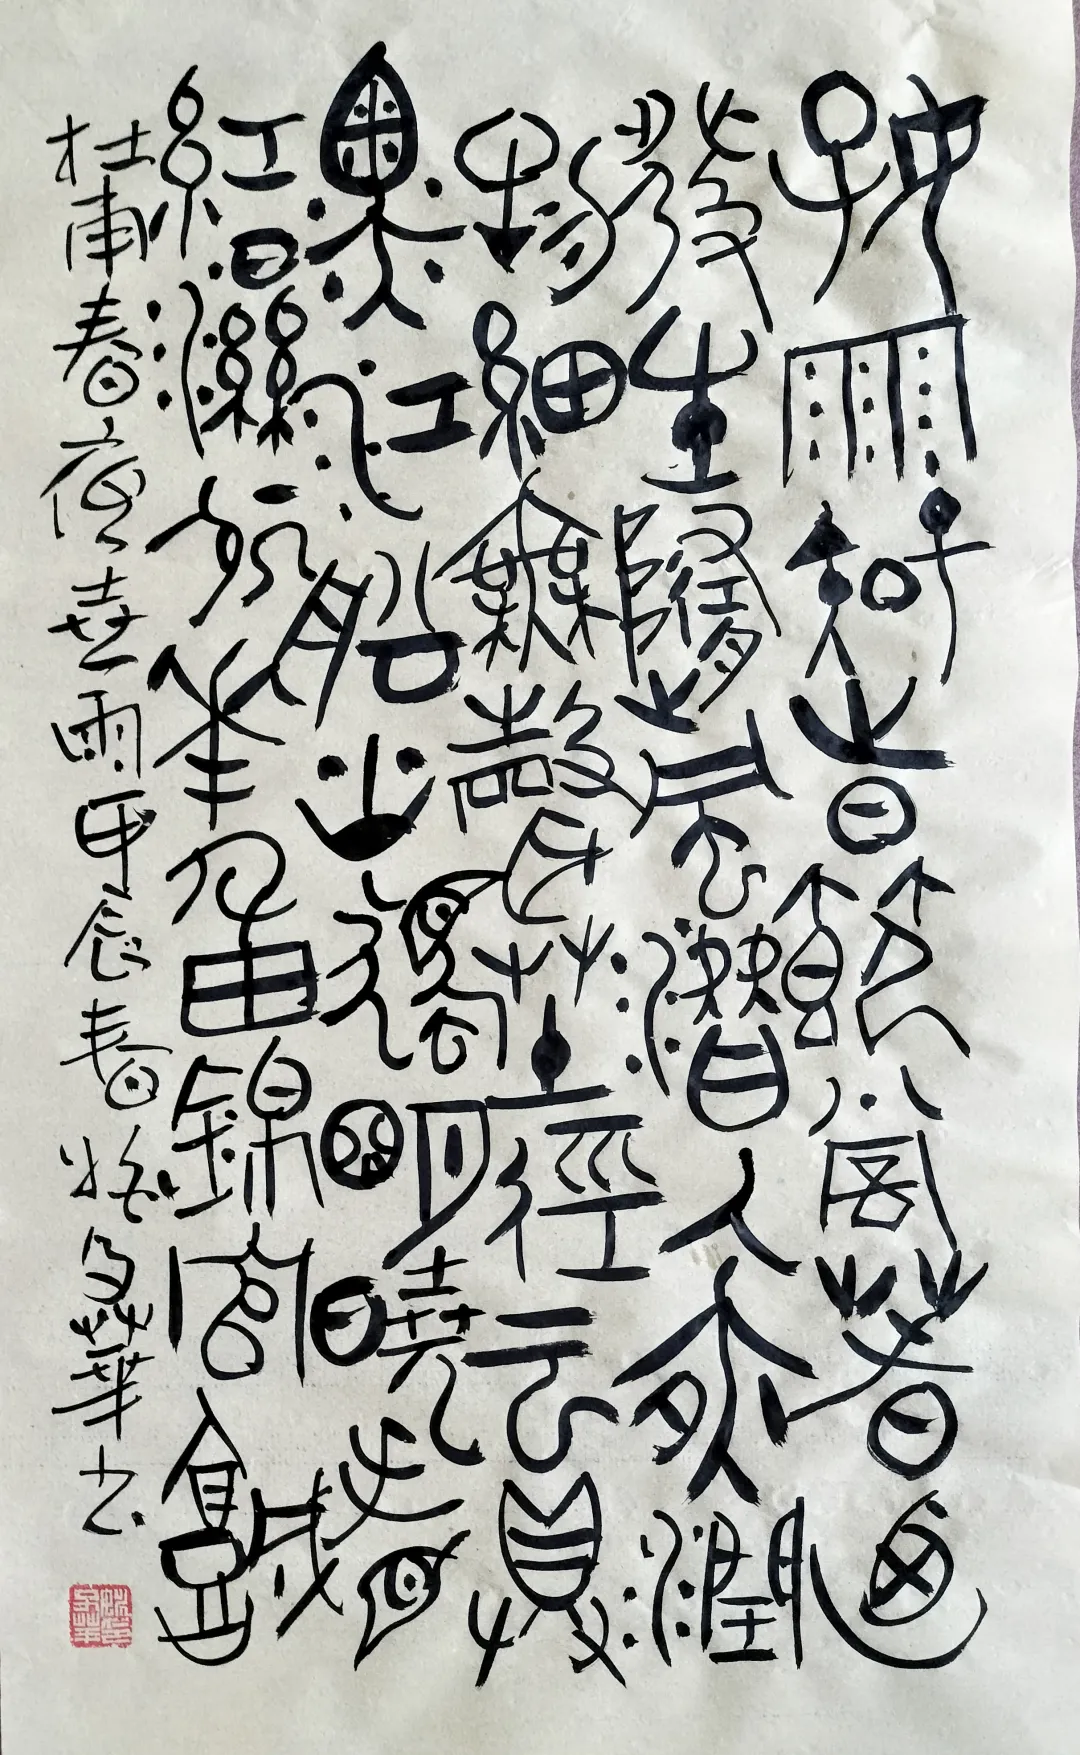 好雨知時節當春迺
發生隨風潛入夜潤
物細無聲野徑云俱
黑江船火獨明曉看
紅濕處花重錦官城
杜甫春夜喜雨甲辰春姚華书